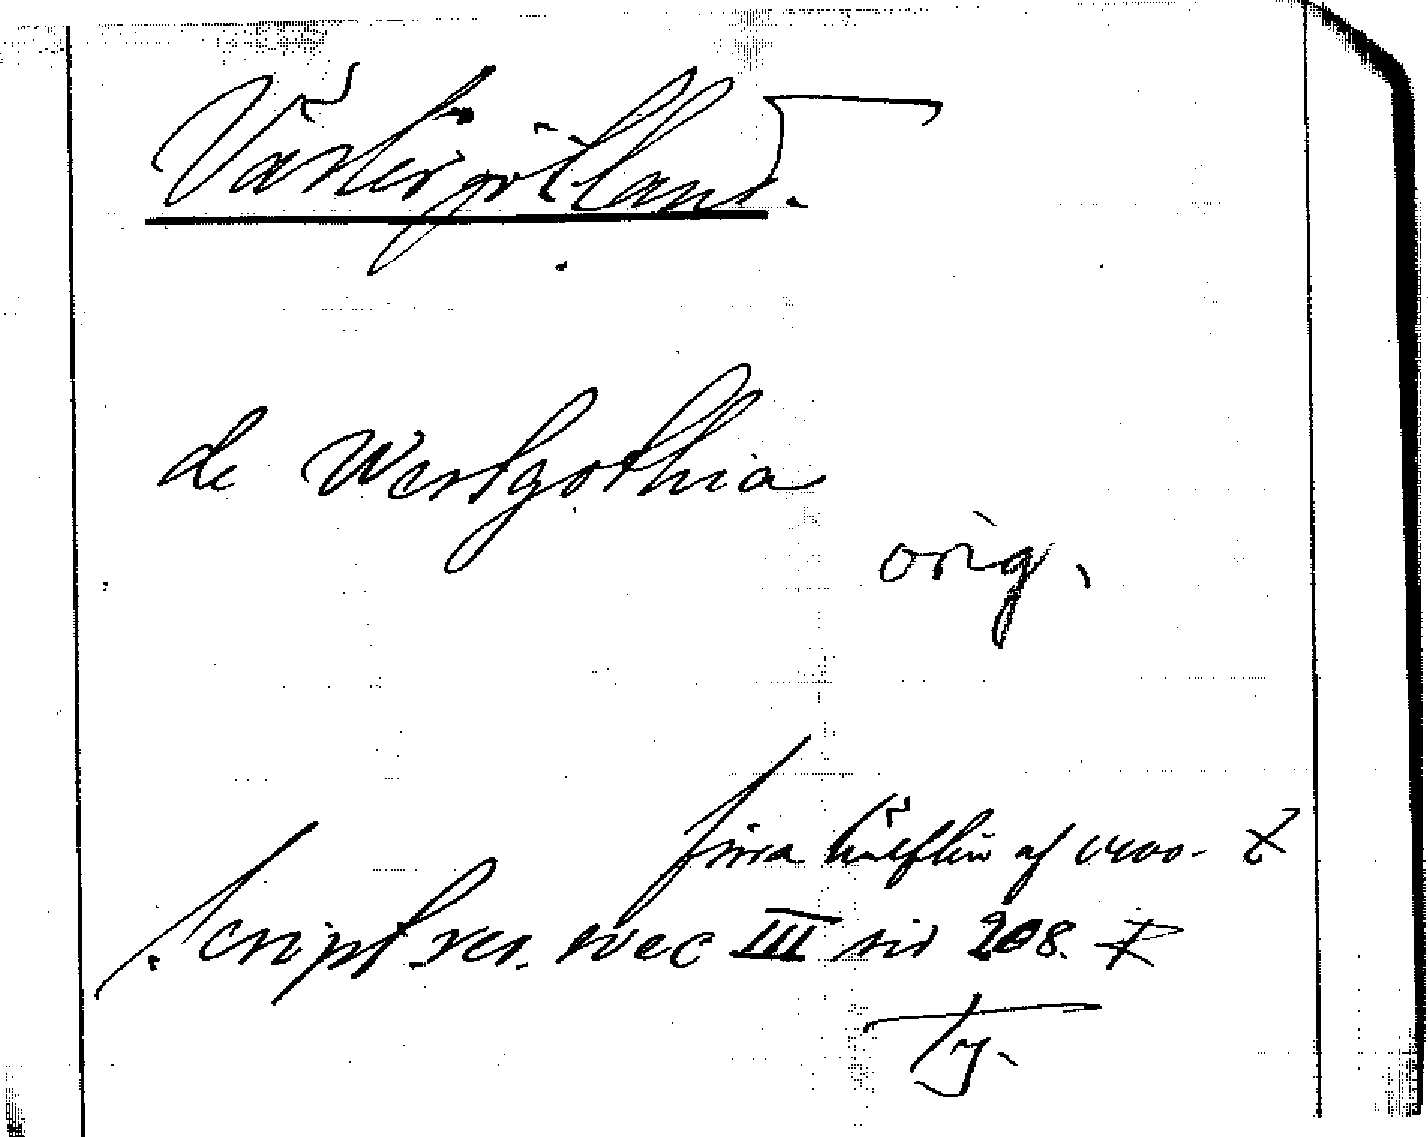 Västergötland.
de Westgothia
orig.
förra hälften af 1400- t
Script. rer. svec III sid 208.
Ty.